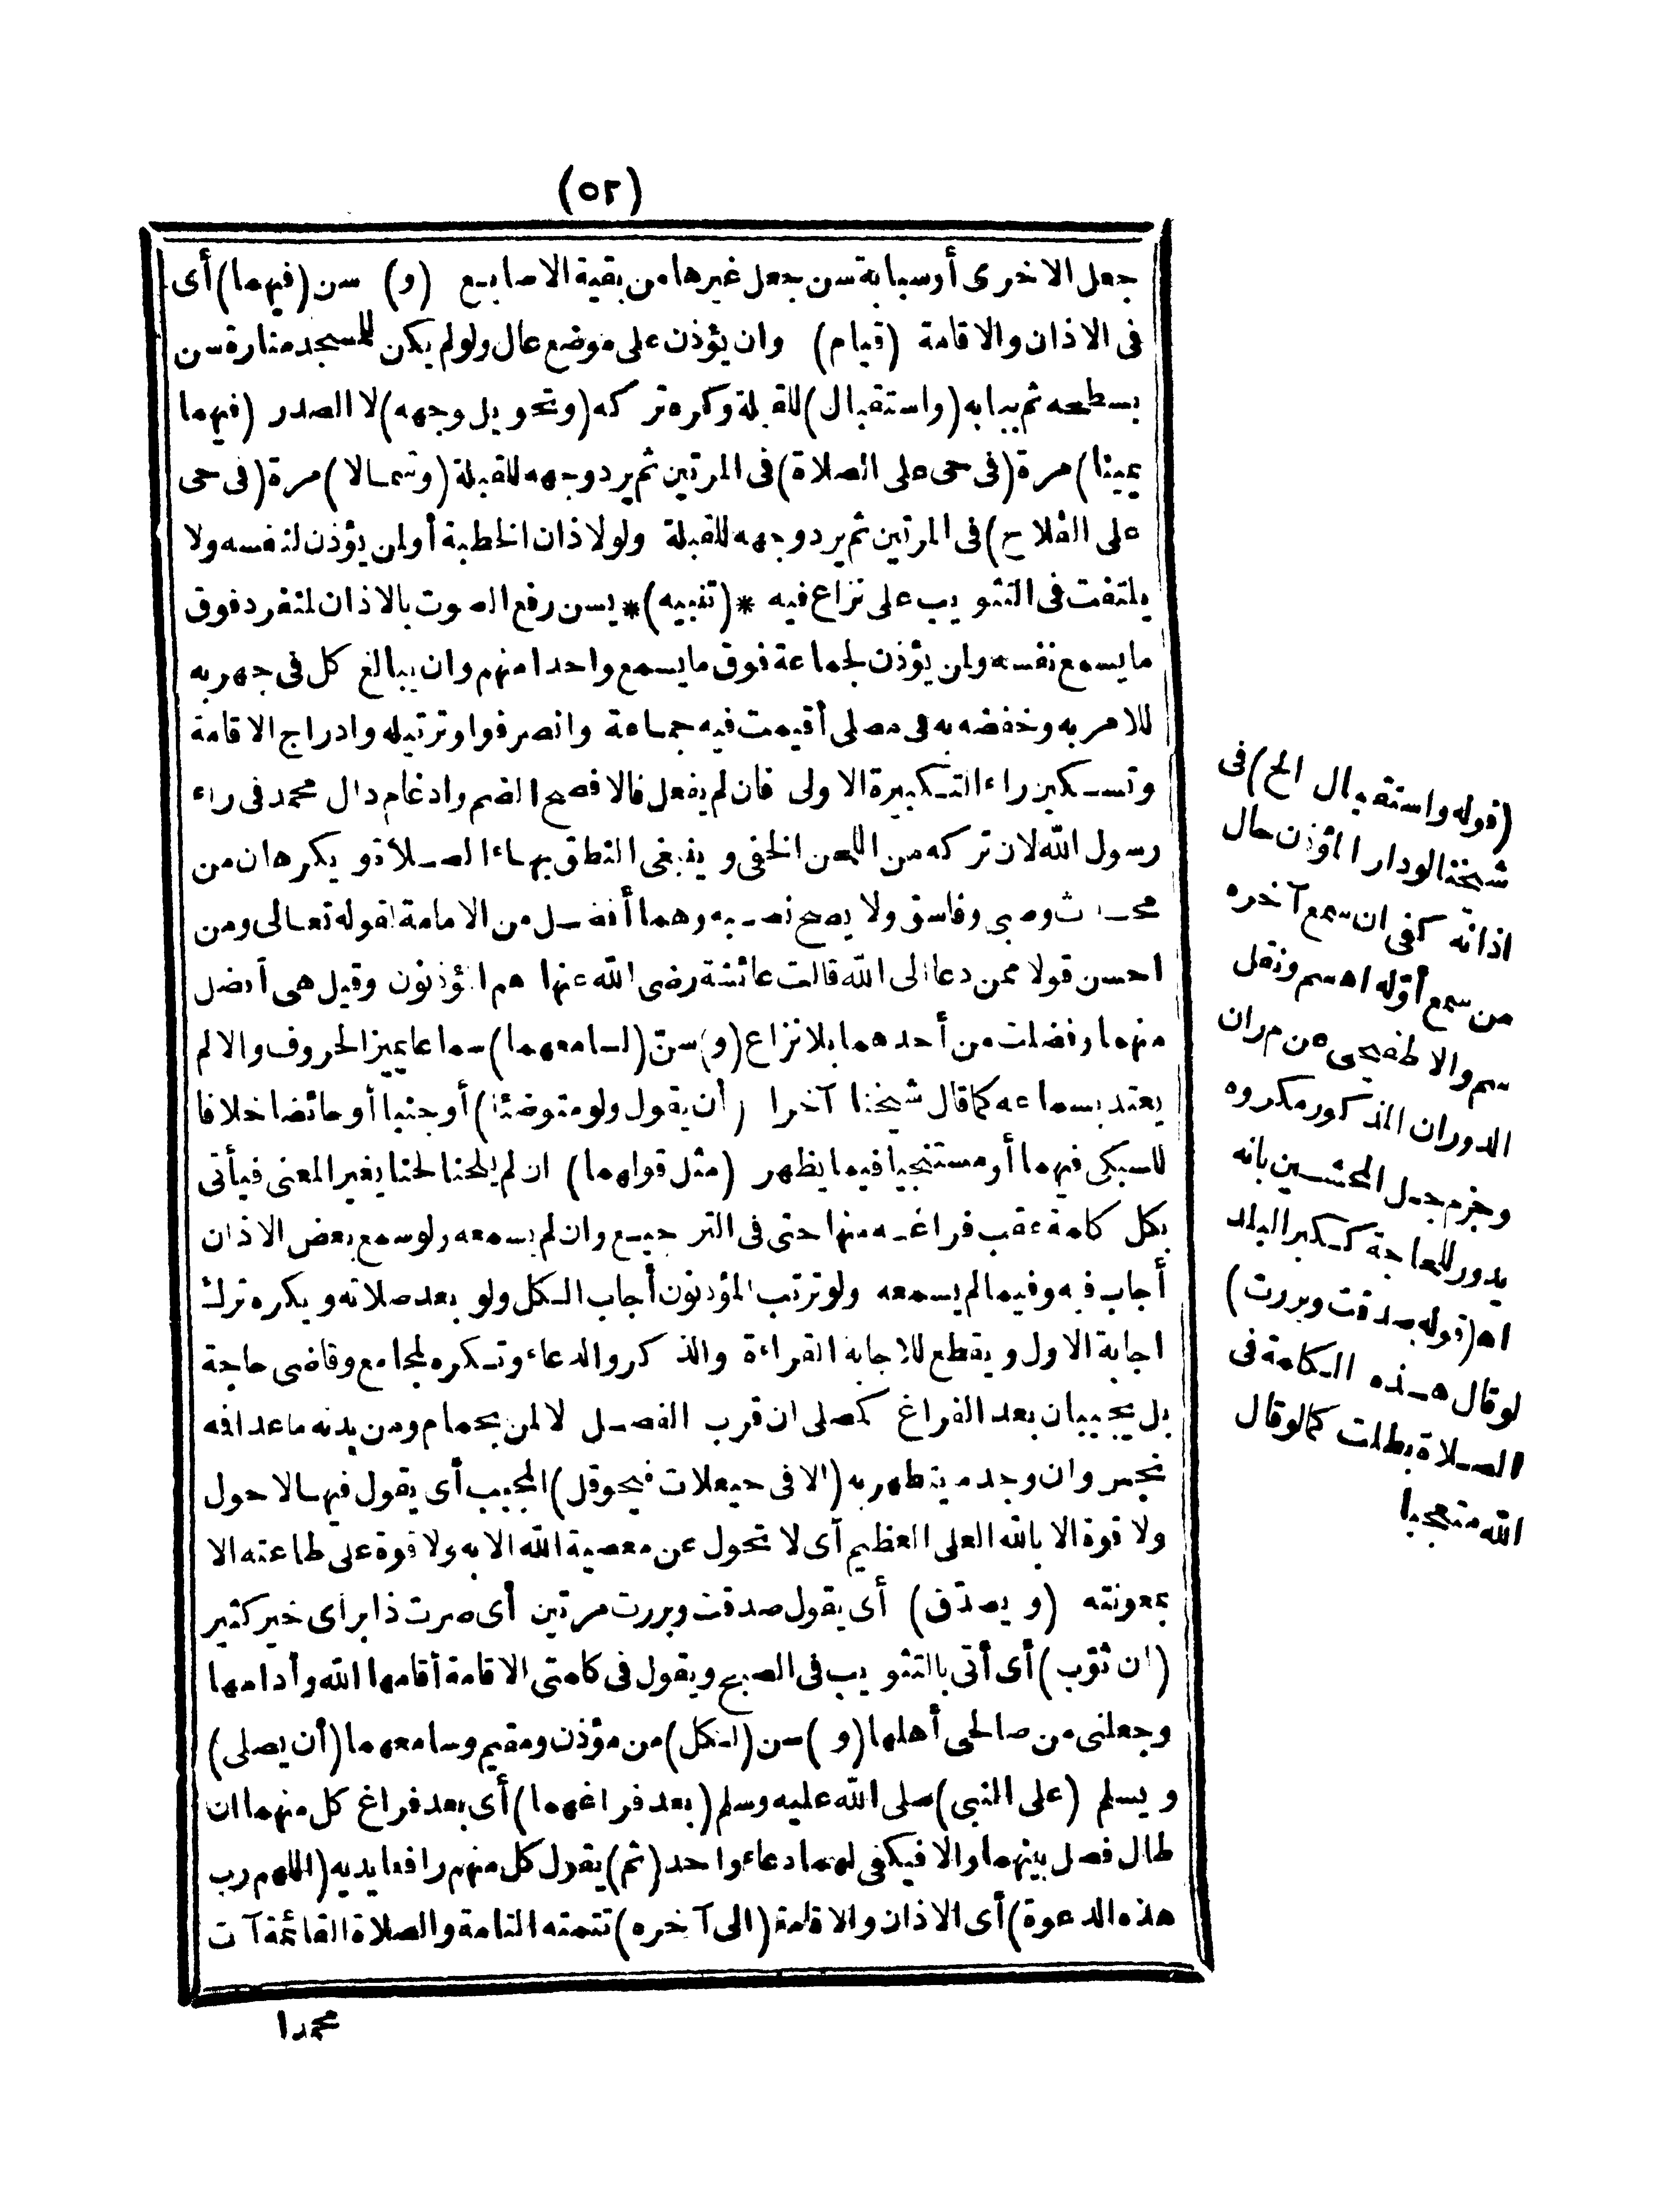 (٥٢)
جعل الاخرى أوسبابة سن جعل غيرها من بقية الاصابع (و) سن (فيهما) أى
فى الاذان والاقامة (قيام) وان يؤذن على موضع عال ولولم يكن للمسجد منارة سن
بسطحه ثم ببابه (واستقبال) للقبلة وكره تركه (وتحويل وجهه) لا الصدر (فيهما
يمينا) مرة (فى حى على الصلاة) فى المرتين ثم يرد وجهه للقبلة (وشمالا) مرة (فى حى
على الفلاح) فى المرتين ثم يرد وجهه للقبلة ولولاذان الخطبة أولمن يؤذن لنفسه ولا
يلتفت فى التثويب على نزاع فيه *(تنبيه)* يسن رفع الصوت بالاذان لمنفرد فوق
ما يسمع نفسه ولمن يؤذن لجماعة فوق ما يسمع واحدا منهم وان يبالغ كل فى جهر به
للامر به وخفضه به فى مصلى أقيمت فيه جماعة وانصرفوا وترتيله وادراج الاقامة
وتسكين راء التكبيرة الاولى فان لم يفعل فالافصح الضم وادغام دال محمد فى راء
رسول الله لان تركه من اللحن الخفى وينبغى النطق بهاء الصلاة ويكرهان من
محدث وصبى وفاسق ولا يصح نصبه وهما أفضل من الامامة لقوله تعالى ومن
احسن قولا ممن دعا الى الله قالت عائشة رضى الله عنها هم المؤذنون وقيل هى أفضل
منهما وفضلت من أحدهما بلا نزاع (و) سنّ (لسامعهما) سماعا يميز الحروف والا لم
يعتد بسماعه كما قال شيخنا آخرا (أن يقول ولو متوضئا) أوجنبا أو حائضا خلافا
للسبكى فيهما أو مستنجيا فيما يظهر (مثل قولهما) ان لم يلحنا لحنا يغير المعنى فيأتى
بكل كلمة عقب فراغه منها حتى فى الترجيع وان لم يسمعه ولو سمع بعض الاذان
أجاب فيه وفيما لم يسمعه ولو ترتب المؤذنون أجاب الكل ولو بعد صلاته ويكره ترك
اجابة الاول ويقطع للاجابة القراءة والذكر والدعاء وتكره لمجامع وقاضى حاجة
بل يجيبان بعد الفراغ كمصلى ان قرب الفصل لا لمن بحمام ومن بدنه ماعدا فمه
نجس وان وجد ما يتطهر به (الا فى حيعلات فيحوقل) المجيب أى يقول فيها لاحول
ولا قوة الا بالله العلى العظيم أى لا تحول عن معصية الله الا به ولا قوة على طاعته الا
بمعونته (ويصدّق) أى يقول صدقت وبررت مرتين أى صرت ذا براى خير كثير
(ان ثوّب) أى أتى بالتثويب فى الصبح ويقول فى كلمتى الاقامة أقامها الله وأدامها
وجعلنى من صالحى أهلها (و) سن (لكل) من مؤذن ومقيم وسامعهما (أن يصلى)
ويسلم (على النبى) صلى الله عليه وسلم (بعد فراغهما) أى بعد فراغ كل منهما ان
طال فصل بينهما والا فيكفى لهما دعاء واحد (ثم) يقول كل منهم رافعا يديه (اللهم رب
هذه الدعوة) أى الاذان والاقامة (الى آخره) تتمته التامة والصلاة القائمة آت
محمدا
(قوله واستقبال الخ) فى
شيخنا لو دار المؤذن حال
اذانه كفى ان سمع آخره
من سمع أوّله اه سم ونقل
سم والاطفيحى عن م ر ان
الدوران المذكور مكروه
وجزم جل المحشين بانه
يدور للحاجة ككبر البلد
اه (قوله صدقت وبررت)
لو قال هذه الكلمة فى
الصلاة بطلت كما لو قال
الله متعجبا